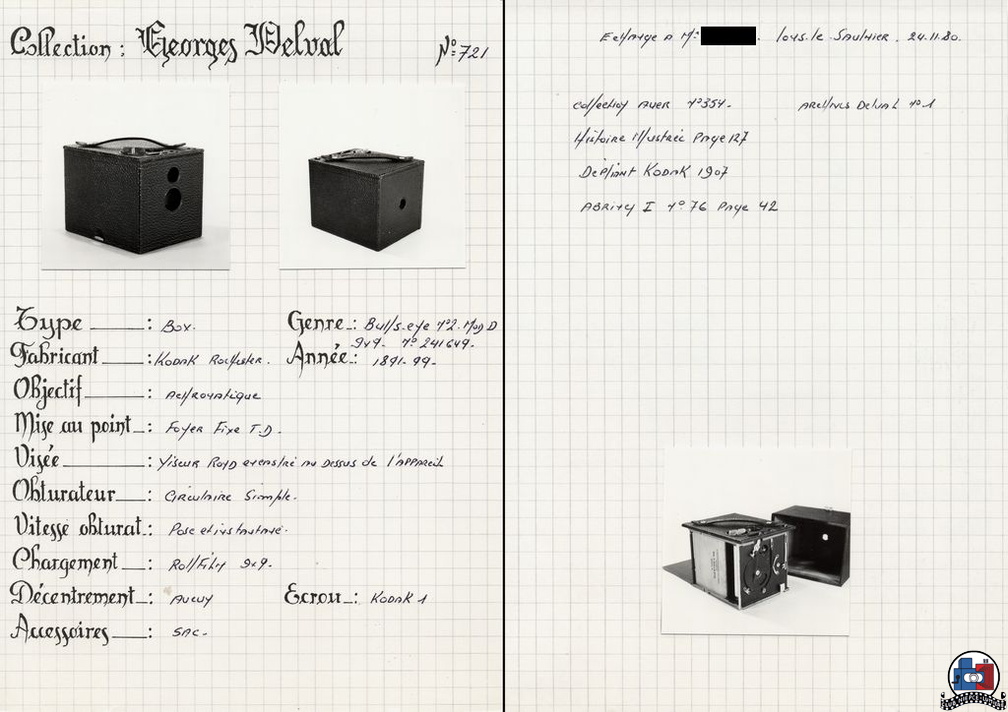 Collection : Georges Delval
N° 721
Type : Box.
Genre : Bull's-eye N°2. Mod D
9x9. N° 241649.
Fabricant : Kodak Rochester.
Année : 1891-99.
Objectif : Achromatique
Mise au point : Foyer Fixe T.D.
Visée : Viseur Rond encastré au Dessus de l'appareil
Obturateur : Circulaire Simple.
Vitesse obturat : Pose et instantané.
Chargement : Rollfilm 9x9.
Décentrement : Aucun
Ecrou : Kodak 1
Accessoires : Sac.
Echange A Mr . Lons. le Saulnier. 24.11.80.
Collection Auer N°354.
Archives Delval N°1
Histoire Illustrée Page 127
Dépliant Kodak 1907
Abring I N° 76 Page 42